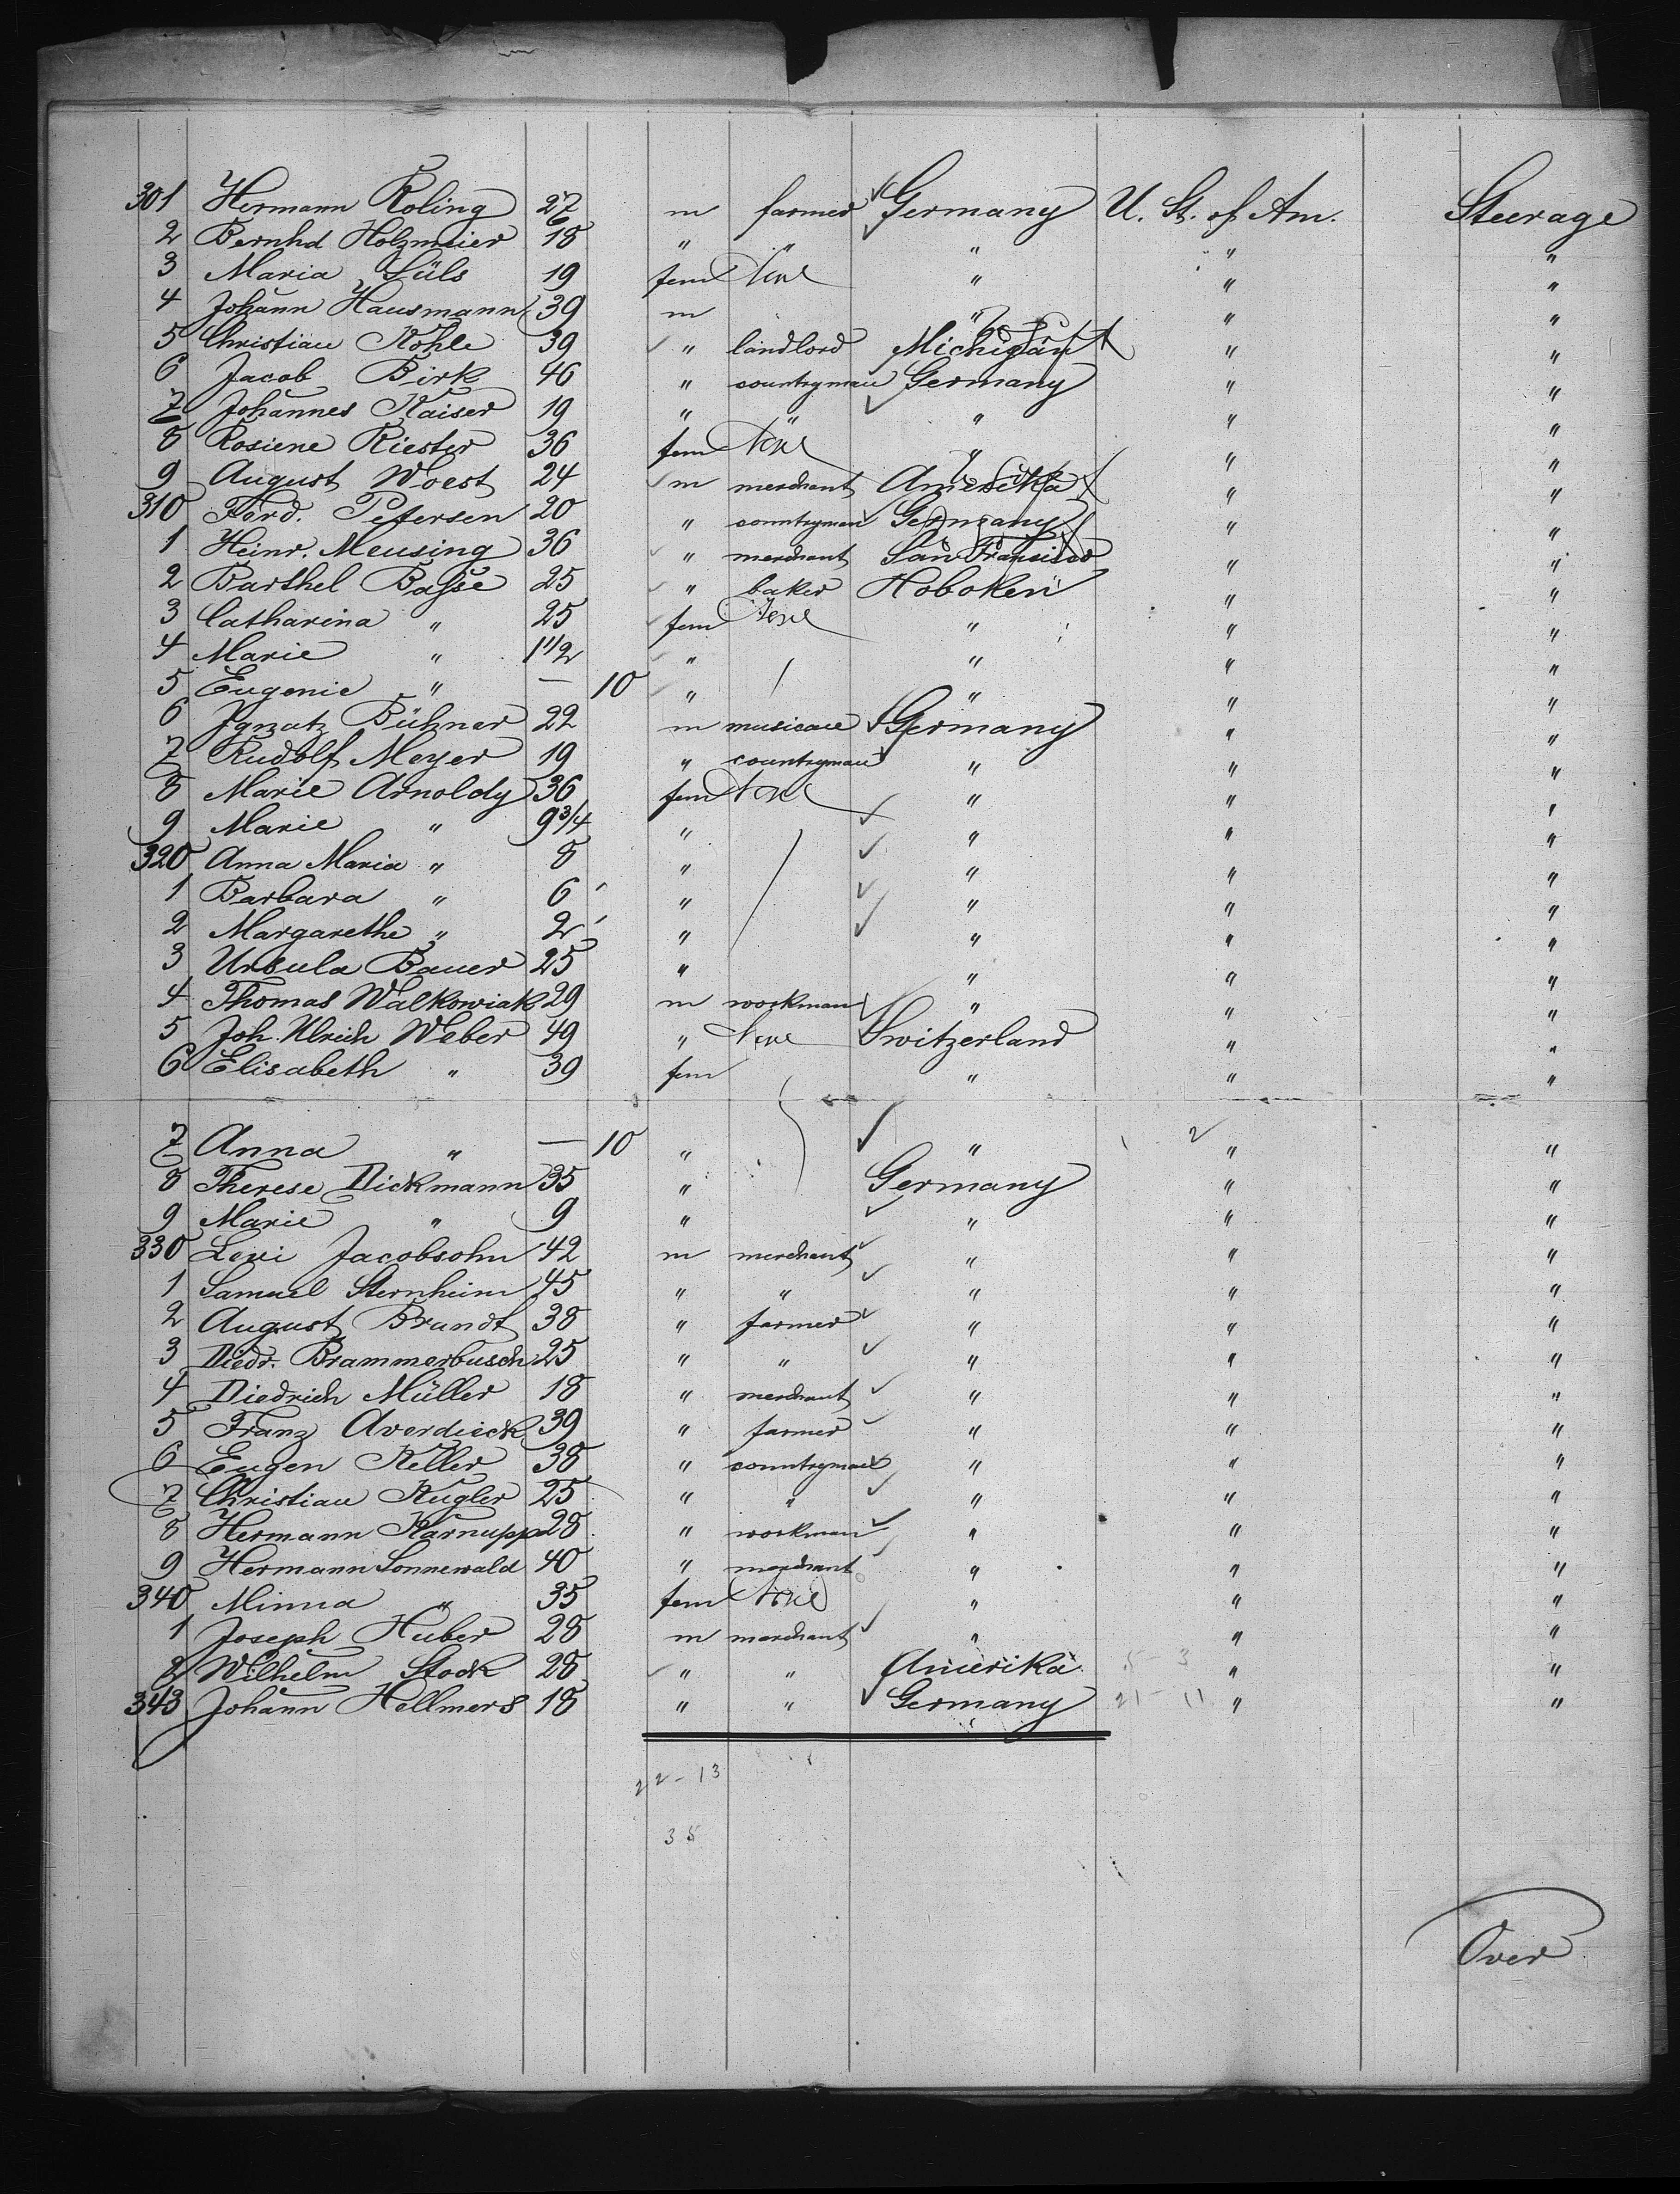 301 Hermann Roling 27 m farmer Germany U. St. of Am. Steerage
2 Bernhd Holzmeier 18 " " " " "
3 Maria Süls 19 fem None " " "
4 Johann Hausmann 39 m " " "
5 Christian Kohle 39 " landlord Michigan " "
6 Jacob Birk 46 " countryman Germany " "
7 Johannes Kaiser 19 " " " " "
8 Rosiene Riester 36 fem None " " "
9 August Woest 24 m merchant Amerika " "
310 Ferd. Petersen 20 " countryman Germany " "
1 Heinr. Meusing 36 " merchant San Francisco " "
2 Barthel Basse 25 " baker Hoboken " "
3 Catharina " 25 fem None " " "
4 Marie " 1 1/2 " " " "
5 Eugenie " — 10 " " " "
6 Ignatz Bühner 22 m musicane Germany " "
7 Rudolf Meyer 19 " countryman " " "
8 Marie Arnoldy 36 fem None " " "
9 Marie " 9 3/4 " " " "
320 Anna Maria " 8 " " " "
1 Barbara " 6 " " " "
2 Margarethe " 2 " " " "
3 Ursula Bauer 25 " " " "
4 Thomas Walkowiak 29 m workman " " "
5 Joh. Ulrich Weber 49 " None Switzerland " "
6 Elisabeth " 39 fem " " "
7 Anna " — 10 " " " "
8 Therese Dickmann 35 " Germany " "
9 Marie " 9 " " " "
330 Levi Jacobsohn 42 m merchant " " "
1 Samuel Sternheim 45 " " " " "
2 August Brandt 38 " farmer " " "
3 Diedr. Brammerbusch 25 " " " " "
4 Diedrich Müller 18 " merchant " " "
5 Franz Averdieck 39 " farmer " " "
6 Eugen Keller 38 " countryman " " "
7 Christian Kugler 25 " " " " "
8 Hermann Karnupp 28 " workman " " "
9 Hermann Sonnewald 40 " merchant " " "
340 Minna " 35 fem None " " "
1 Joseph Huber 28 m merchant " " "
2 Wilhelm Stock 28 " " Amerika 5-3 " "
343 Johann Hellmers 18 " " Germany 21-11 " "
22-13
35
Over